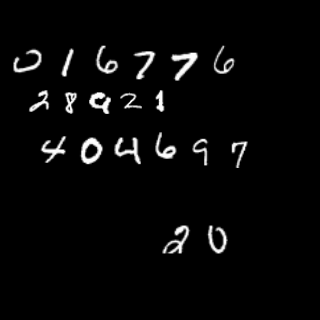 016776
28921
404697
20